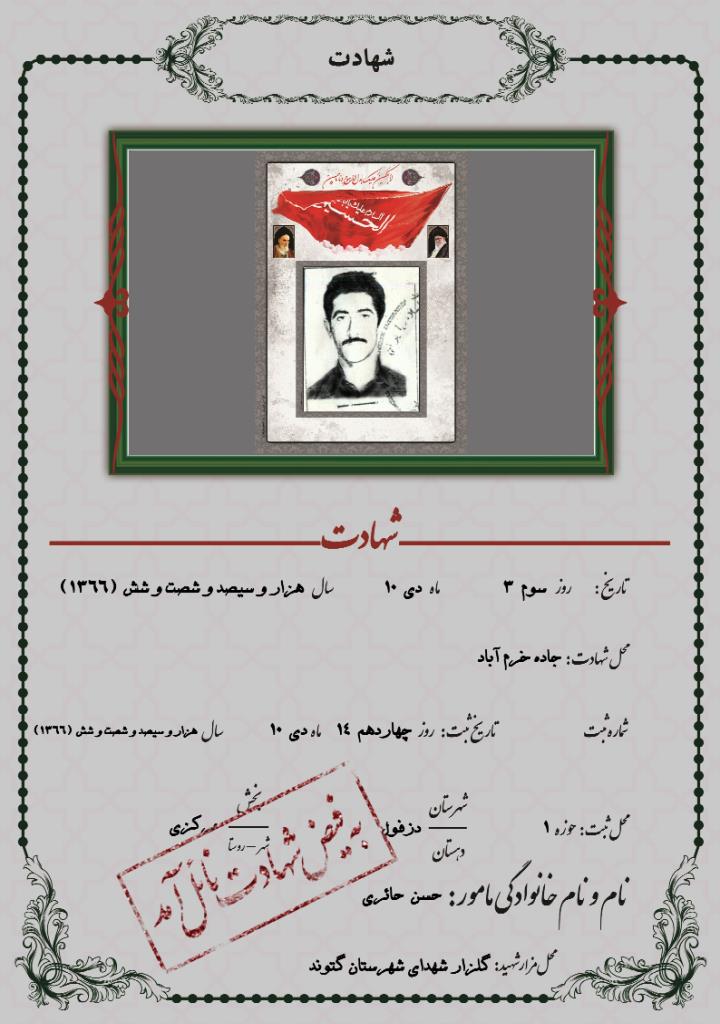 شهادت
السلام علیک یا
الحسین
شهادت
تاریخ: روز سوم ۳ ماه دی ۱۰ سال هزار و سیصد و شصت و شش (۱۳۶۶)
محل شهادت: جاده خرم آباد
شماره ثبت تاریخ ثبت: روز چهاردهم ۱۴ ماه دی ۱۰ سال هزار و سیصد و شصت و شش (۱۳۶۶)
محل ثبت: حوزه ۱ شهرستان دزفول بخش مرکزی
دهستان شهر-روستا
به فیض شهادت نائل آمد
نام و نام خانوادگی مامور: حسن حائری
محل مزار شهید: گلزار شهدای شهرستان گتوند